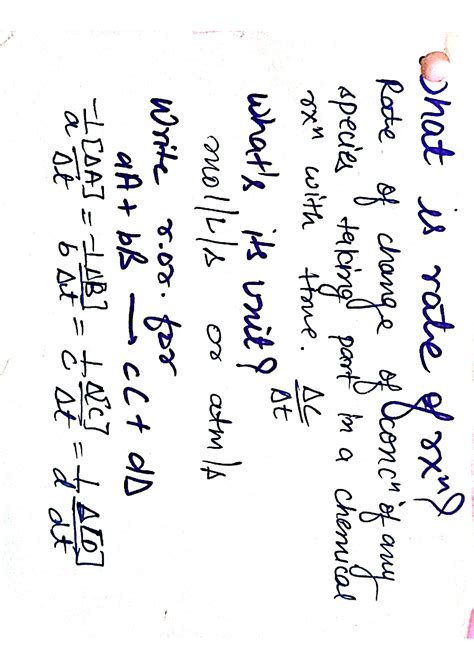 What is rate of rxⁿ?
Rate of change of concⁿ of any
species taking part in a chemical
rxⁿ with time. ΔC/Δt
What's its unit?
mol/L/s or atm/s
Write r.o.r. for
aA + bB → cC + dD
-1/a [ΔA]/Δt = -1/b ΔB]/Δt = 1/c Δ[C]/Δt = 1/d Δ[D]/dt